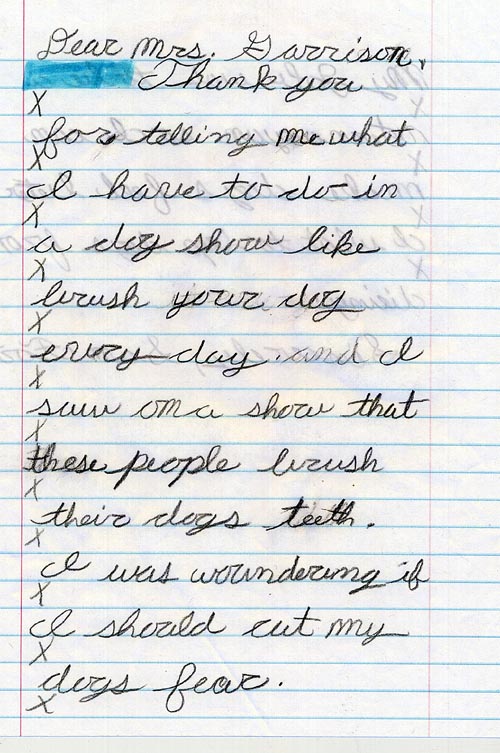 Dear Mrs. Garrison,
Thank you
X
for telling me what
X
I have to do in
X
a dog show like
X
brush your dog
X
every day. and I
X
saw on a show that
X
these people brush
X
their dogs teeth.
X
I was woundering if
X
I should cut my
X
dogs fear.
X